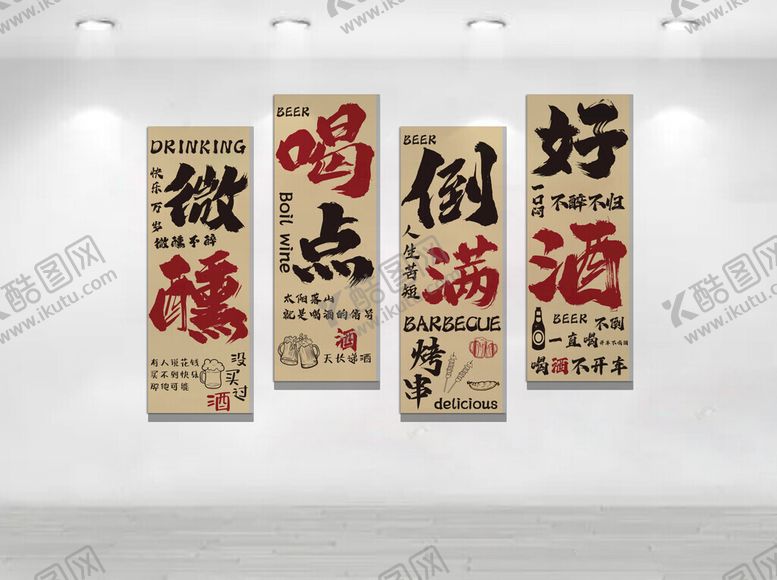 DRINKING
快乐万岁
微醺
微醺不醉
有人说花钱
买不到快乐
那他可能
没买过酒
BEER
喝点
Boil wine
太阳落山
就是喝酒的信号
酒
天长递酒
BEER
倒满
人生苦短
BARBECUE
烤串
delicious
好酒
一口闷
不醉不归
BEER
一直喝
不倒
喝酒不开车
K酷图网
www.ikutu.com